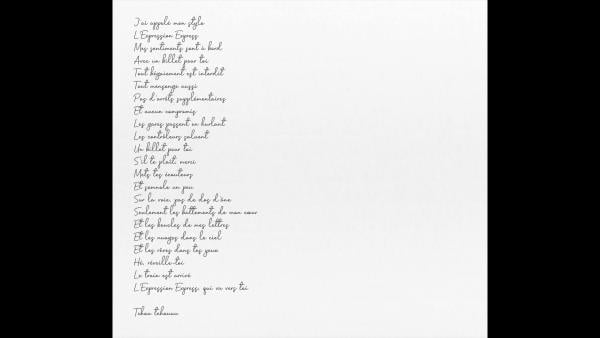 J'ai appelé mon stylo
L'Expression Express
Mes sentiments sont à bord
Avec un billet pour toi
Tout bégaiement est interdit
Tout mensonge aussi
Pas d'arrêts supplémentaires
Et aucun compromis
Les gares passent en hurlant
Les contrôleurs saluent
Un billet pour toi
S'il te plaît, merci
Mets tes écouteurs
Et somnole un peu
Sur la voie, pas de dos d'âne
Seulement les battements de mon cœur
Et les boucles de mes lettres
Et les nuages dans le ciel
Et les rêves dans tes yeux
Hé, réveille-toi
Le train est arrivé
L'Expression Express, qui va vers toi
Tchou tchouuu